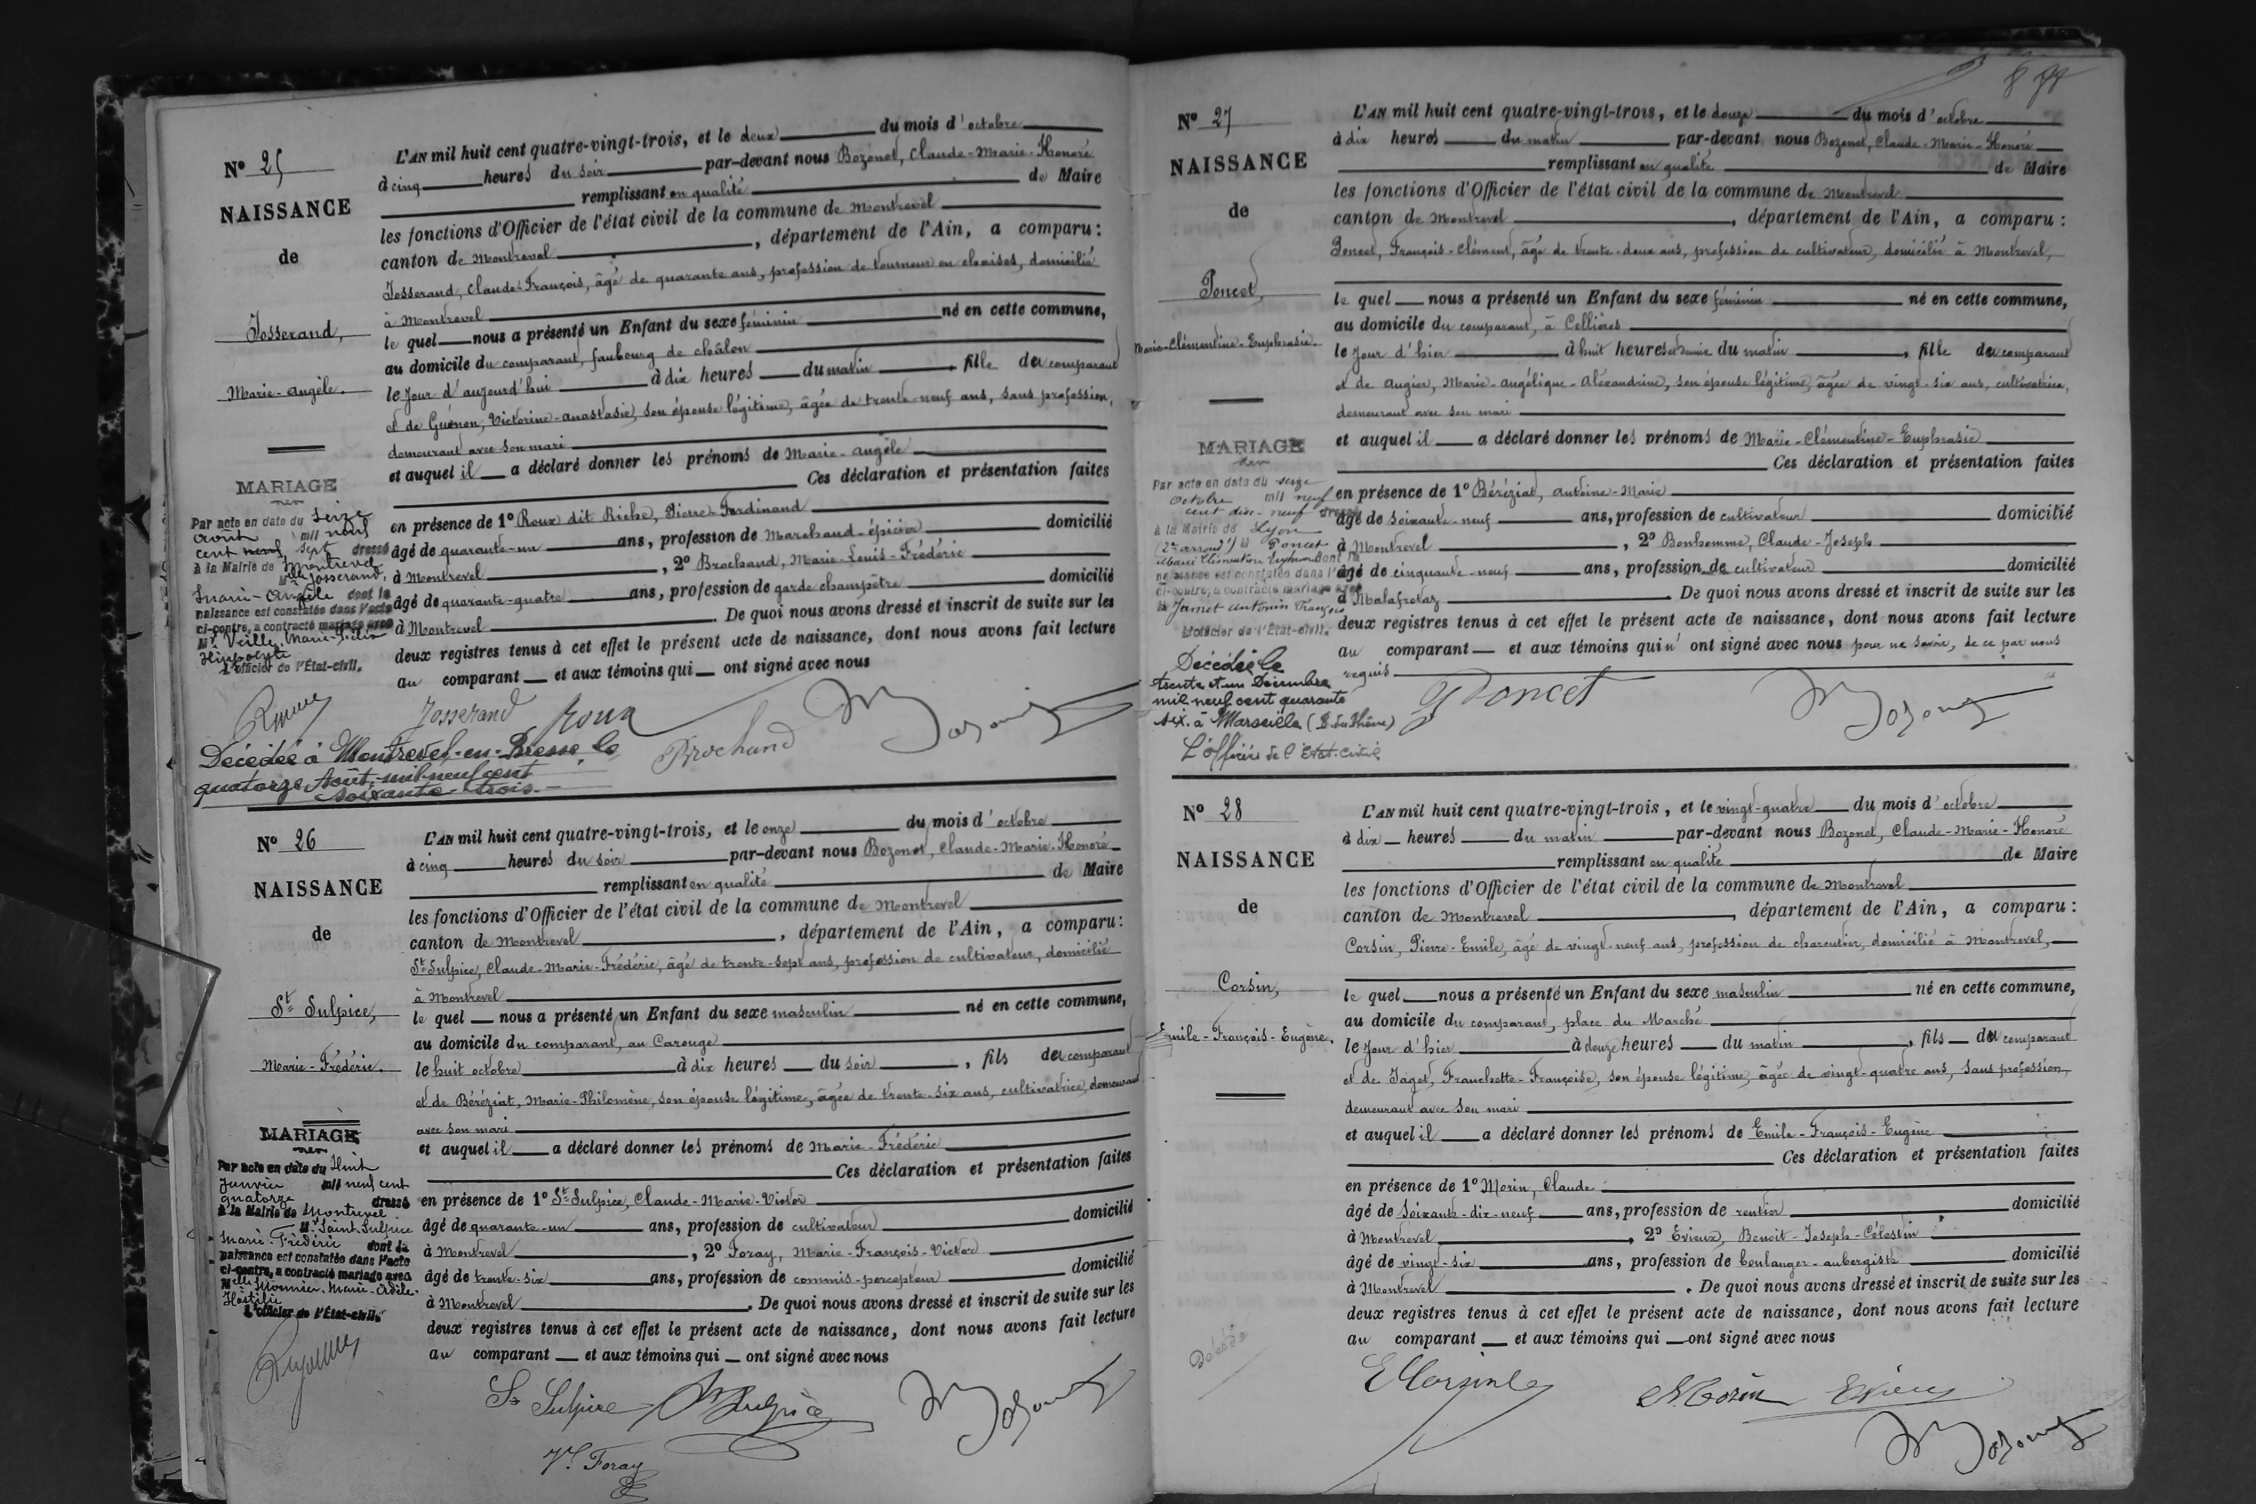 N° 25
NAISSANCE
de
Josserand,
Marie-Angèle.
L'AN mil huit cent quatre-vingt-trois, et le deux du mois d'octobre
à cinq heures du soir par-devant nous Bozonet, Claude-Marie-Honoré
remplissant en qualité de Maire
les fonctions d'Officier de l'état civil de la commune de Montrevel
canton de Montrevel, département de l'Ain, a comparu :
Josserand, Claude-François, âgé de quarante ans, profession de tourneur en chaises, domicilié
à Montrevel
le quel nous a présenté un Enfant du sexe féminin né en cette commune,
au domicile du comparant, faubourg de châlon
le jour d'aujourd'hui à dix heures du matin, fille du comparant
et de Guénon, Victorine-Anastasie, son épouse légitime, âgée de trente-neuf ans, sans profession,
demeurant avec son mari
et auquel il a déclaré donner les prénoms de Marie-Angèle
Ces déclaration et présentation faites
en présence de 1° Roux dit Riche, Pierre-Ferdinand
âgé de quarante-un ans, profession de Marchand-épicier domicilié
à Montrevel, 2° Brochand, Marie-Louis-Frédéric
âgé de quarante-quatre ans, profession de garde champêtre domicilié
à Montrevel. De quoi nous avons dressé et inscrit de suite sur les
deux registres tenus à cet effet le présent acte de naissance, dont nous avons fait lecture
au comparant et aux témoins qui ont signé avec nous
MARIAGE
Par acte en date du Seize
Avril mil neuf
cent neuf, sept dressé
à la Mairie de Montrevel
Mlle Josserand,
Marie-Angèle dont la
naissance est constatée dans l'acte
ci-contre, a contracté mariage avec
Mr Veille, Marie-Félix
Hippolyte
L'Officier de l'État-civil.
Josserand Roux
Brochand Bozonet
Décédée à Montrevel-en-Bresse, le
quatorze Août mil neuf cent
soixante-trois.
N° 26
NAISSANCE
de
St Sulpice,
Marie-Frédéric.
L'AN mil huit cent quatre-vingt-trois, et le onze du mois d'octobre
à cinq heures du soir par-devant nous Bozonet, Claude-Marie-Honoré
remplissant en qualité de Maire
les fonctions d'Officier de l'état civil de la commune de Montrevel
canton de Montrevel, département de l'Ain, a comparu :
St Sulpice, Claude-Marie-Frédéric, âgé de trente-sept ans, profession de cultivateur, domicilié
à Montrevel
le quel nous a présenté un Enfant du sexe masculin né en cette commune,
au domicile du comparant, au Carouge
le huit octobre à dix heures du soir, fils du comparant
et de Béréziat, Marie-Philomène, son épouse légitime, âgée de trente-six ans, cultivatrice, demeurant
avec son mari
et auquel il a déclaré donner les prénoms de Marie-Frédéric
Ces déclaration et présentation faites
en présence de 1° St Sulpice, Claude-Marie-Victor
âgé de quarante-un ans, profession de cultivateur domicilié
à Montrevel, 2° Foray, Marie-François-Victor
âgé de trente-six ans, profession de commis-percepteur domicilié
à Montrevel. De quoi nous avons dressé et inscrit de suite sur les
deux registres tenus à cet effet le présent acte de naissance, dont nous avons fait lecture
au comparant et aux témoins qui ont signé avec nous
MARIAGE
Par acte en date du Huit
Janvier mil neuf cent
quatorze dressé
à la Mairie de Montrevel
Mr Saint-Sulpice
Marie-Frédéric dont la
naissance est constatée dans l'acte
ci-contre, a contracté mariage avec
Mlle Monnier, Marie-Adèle-
L'Officier de l'État-civil.
St Sulpice St Sulpice Bozonet
Vr Foray
N° 27
NAISSANCE
de
Poncet,
Marie-Clémentine-Euphrasie.
L'AN mil huit cent quatre-vingt-trois, et le douze du mois d'octobre
à dix heures du matin par-devant nous Bozonet, Claude-Marie-Honoré
remplissant en qualité de Maire
les fonctions d'Officier de l'état civil de la commune de Montrevel
canton de Montrevel, département de l'Ain, a comparu :
Poncet, François-Clément, âgé de trente-deux ans, profession de cultivateur, domicilié à Montrevel,
le quel nous a présenté un Enfant du sexe féminin né en cette commune,
au domicile du comparant, à Cellières
le jour d'hier à huit heures et demie du matin, fille du comparant
et de Augier, Marie-Angélique-Alexandrine, son épouse légitime, âgée de vingt-six ans, cultivatrice,
demeurant avec son mari
et auquel il a déclaré donner les prénoms de Marie-Clémentine-Euphrasie
Ces déclaration et présentation faites
en présence de 1° Béréziat, Antoine-Marie
âgé de soixante-neuf ans, profession de cultivateur domicilié
à Montrevel, 2° Bonhomme, Claude-Joseph
âgé de cinquante-neuf ans, profession de cultivateur domicilié
à Malafretaz. De quoi nous avons dressé et inscrit de suite sur les
deux registres tenus à cet effet le présent acte de naissance, dont nous avons fait lecture
au comparant et aux témoins qui n'ont signé avec nous pour ne savoir, de ce par nous
requis
MARIAGE
Par acte en date du seize
octobre mil neuf
cent dix-neuf dressé
à la Mairie de Lyon
(2e arrondt) Poncet
Marie Clémentine dont la
naissance est constatée dans l'acte
ci-contre, a contracté mariage avec
Jamet Antonin François
L'Officier de l'État-civil.
Décédée le
trente et un Décembre
mil neuf cent quarante
six à Marseille (B. du Rhône)
L'officier de l'Etat-civil
Poncet Bozonet
N° 28
NAISSANCE
de
Corsin,
Emile-François-Eugène.
L'AN mil huit cent quatre-vingt-trois, et le vingt-quatre du mois d'octobre
à dix heures du matin par-devant nous Bozonet, Claude-Marie-Honoré
remplissant en qualité de Maire
les fonctions d'Officier de l'état civil de la commune de Montrevel
canton de Montrevel, département de l'Ain, a comparu :
Corsin, Pierre-Emile, âgé de vingt-neuf ans, profession de charcutier, domicilié à Montrevel,
le quel nous a présenté un Enfant du sexe masculin né en cette commune,
au domicile du comparant, place du Marché
le jour d'hier à douze heures du matin, fils du comparant
et de Jaget, Franchette-Françoise, son épouse légitime, âgée de vingt-quatre ans, sans profession,
demeurant avec son mari
et auquel il a déclaré donner les prénoms de Emile-François-Eugène
Ces déclaration et présentation faites
en présence de 1° Morin, Claude
âgé de soixante-dix-neuf ans, profession de rentier domicilié
à Montrevel, 2° Evieux, Benoit-Joseph-Célestin
âgé de vingt-six ans, profession de boulanger-aubergiste domicilié
à Montrevel. De quoi nous avons dressé et inscrit de suite sur les
deux registres tenus à cet effet le présent acte de naissance, dont nous avons fait lecture
au comparant et aux témoins qui ont signé avec nous
E Corsin Morin Evieux
Bozonet